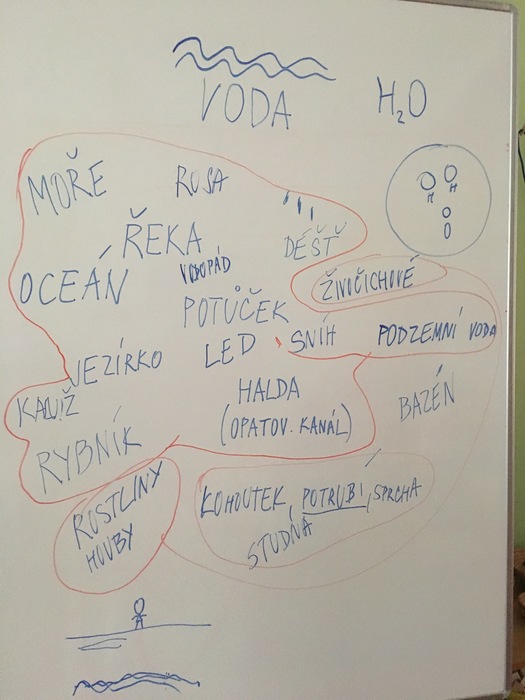 VODA
H₂O
MOŘE
RUSA
ŘEKA
DÉŠŤ
VODOPÁD
OCEÁN
ŽIVOČICHOVÉ
POTŮČEK
LED
SNÍH
PODZEMNÍ VODA
JEZÍRKO
KALUŽ
HALDA
(OPATOV. KANÁL)
BAZÉN
RYBNÍK
ROSTLINY
HOUBY
KOHOUTEK, POTRUBÍ, SPRCHA
STUDŇA